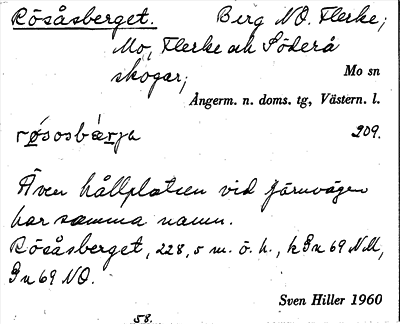 Rösåsberget. Berg NO. Flerke,
Mo, Flerke och Söderå
skogar;
Mo sn
Ångerm. n. doms. tg, Västern. l.
røsosbærja 209.
Även hållplatsen vid järnvägen
har samma namn.
Rösåsberget, 228,5 m. ö. h., k Gn 69 NM,
Gn 69 NO.
Sven Hiller 1960
58.